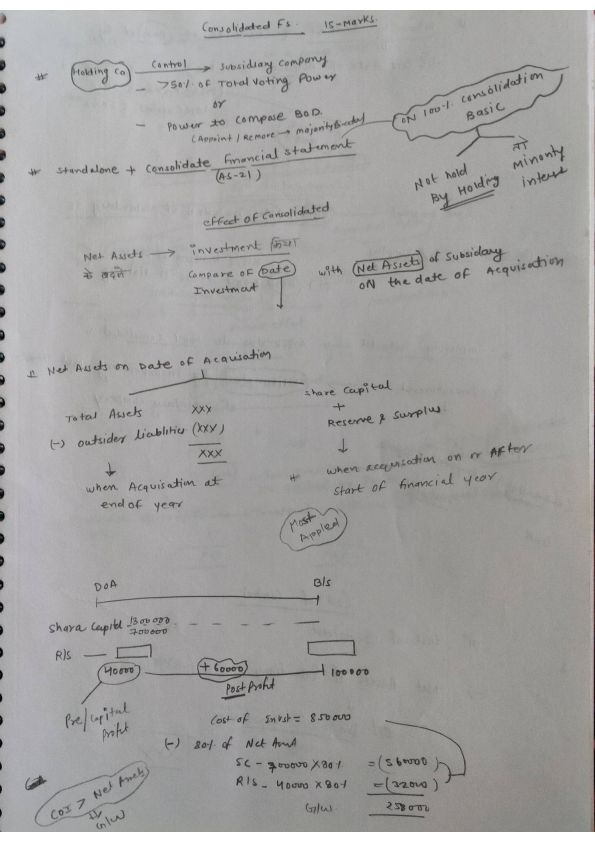 Consolidated Fs. 15-Marks.
* Holding Co Control → Subsidiary Company
- >50% of Total Voting Power
or
- Power to Compose BOD.
(Appoint / Remove → majority
ON 100% Consolidation
Basic
Not hold
By Holding
Minority
interest
* Standalone + Consolidate financial statement
(AS-21)
effect of Consolidated
Net Assets → investment किया
के बदले
Compare of Date with Net Assets of Subsidary
Investment ON the date of Acquisation
Net Assets on Date of Acquisation
Total Assets XXX
(-) outsider liablities (XXX)
XXX
↓
when Acquisation at
end of year
Share Capital
+
Reserve & Surplus.
↓
* when acquisation on or After
start of financial year
Most
Applied
DOA B/s
Share Capital 1300000
700000
R/S
40000 +60000 100000
Post Profit
Pre/Capital
Profit
Cost of Invst = 850000
(-) 80% of Net Asset
SC - 700000 X 80% = (560000)
R/S - 40000 X 80% = (32000)
G/W 258000
COI > Net Assets
G/W